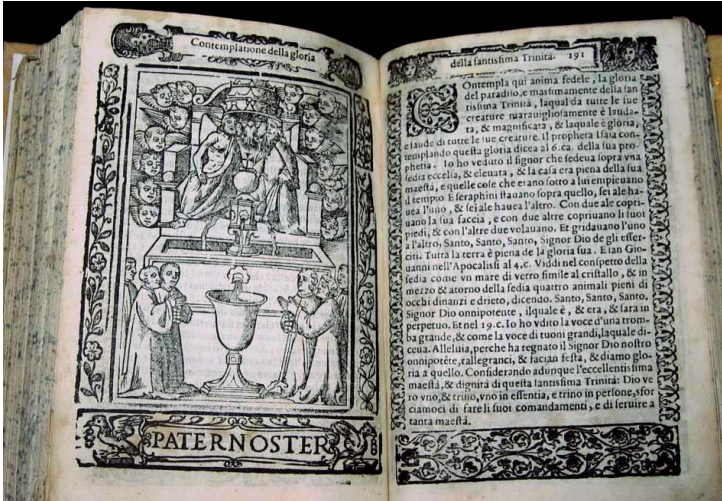 Contemplatione della gloria
PATERNOSTER
della santissima Trinità. 191
COntempla qui anima fedele, la gloria
del paradiso, e massimamente della san
tissima Trinità, laqual da tutte le sue
creature marauigliosamente è lauda-
ta, & magnificata, & laquale è gloria,
e laude di tutte le sue creature. Il propheta Isaia con-
templando questa gloria dicea al 6. ca. della sua pro-
phetia. Io ho veduto il signor che sedeua sopra vna
sedia eccelsa, & eleuata, & la casa era piena della sua
maestà, e quelle cose che erano sotto a lui empieuano
il tempio. E seraphini stauano sopra quello, sei ale ha-
uea l'uno, & sei ale hauea l'altro. Con due ale copri-
uano la sua faccia, e con due altre copriuano li suoi
piedi, & con l'altre due volauano. Et gridauano l'uno
a l'altro, Santo, Santo, Santo, Signor Dio de gli esser-
citi. Tutta la terra è piena de la gloria sua. E san Gio-
uanni nell'Apocalisi al 4. c. Viddi nel conspetto della
sedia come vn mare di vetro simile al cristallo, & in
mezzo & atorno della sedia quattro animali pieni di
occhi dinanzi e drieto, dicendo. Santo, Santo, Santo,
Signor Dio onnipotente, ilquale è, & era, & sara in
perpetuo. Et nel 19. c. Io ho vdito la voce d'una trom-
ba grande, & come la voce di tuoni grandi, laquale di-
ceua. Alleluia, perche ha regnato il Signor Dio nostro
onnipotēte, rallegranci, & facian festa, & diamo glo-
ria a quello. Considerando adunque l'eccellentissima
maestà, & dignità di questa santissima Trinità: Dio ve
ro vno, & trino, vno in essentia, e trino in persone, sfor
ciamoci di fare li suoi comandamenti, e di seruire a
tanta maestà.